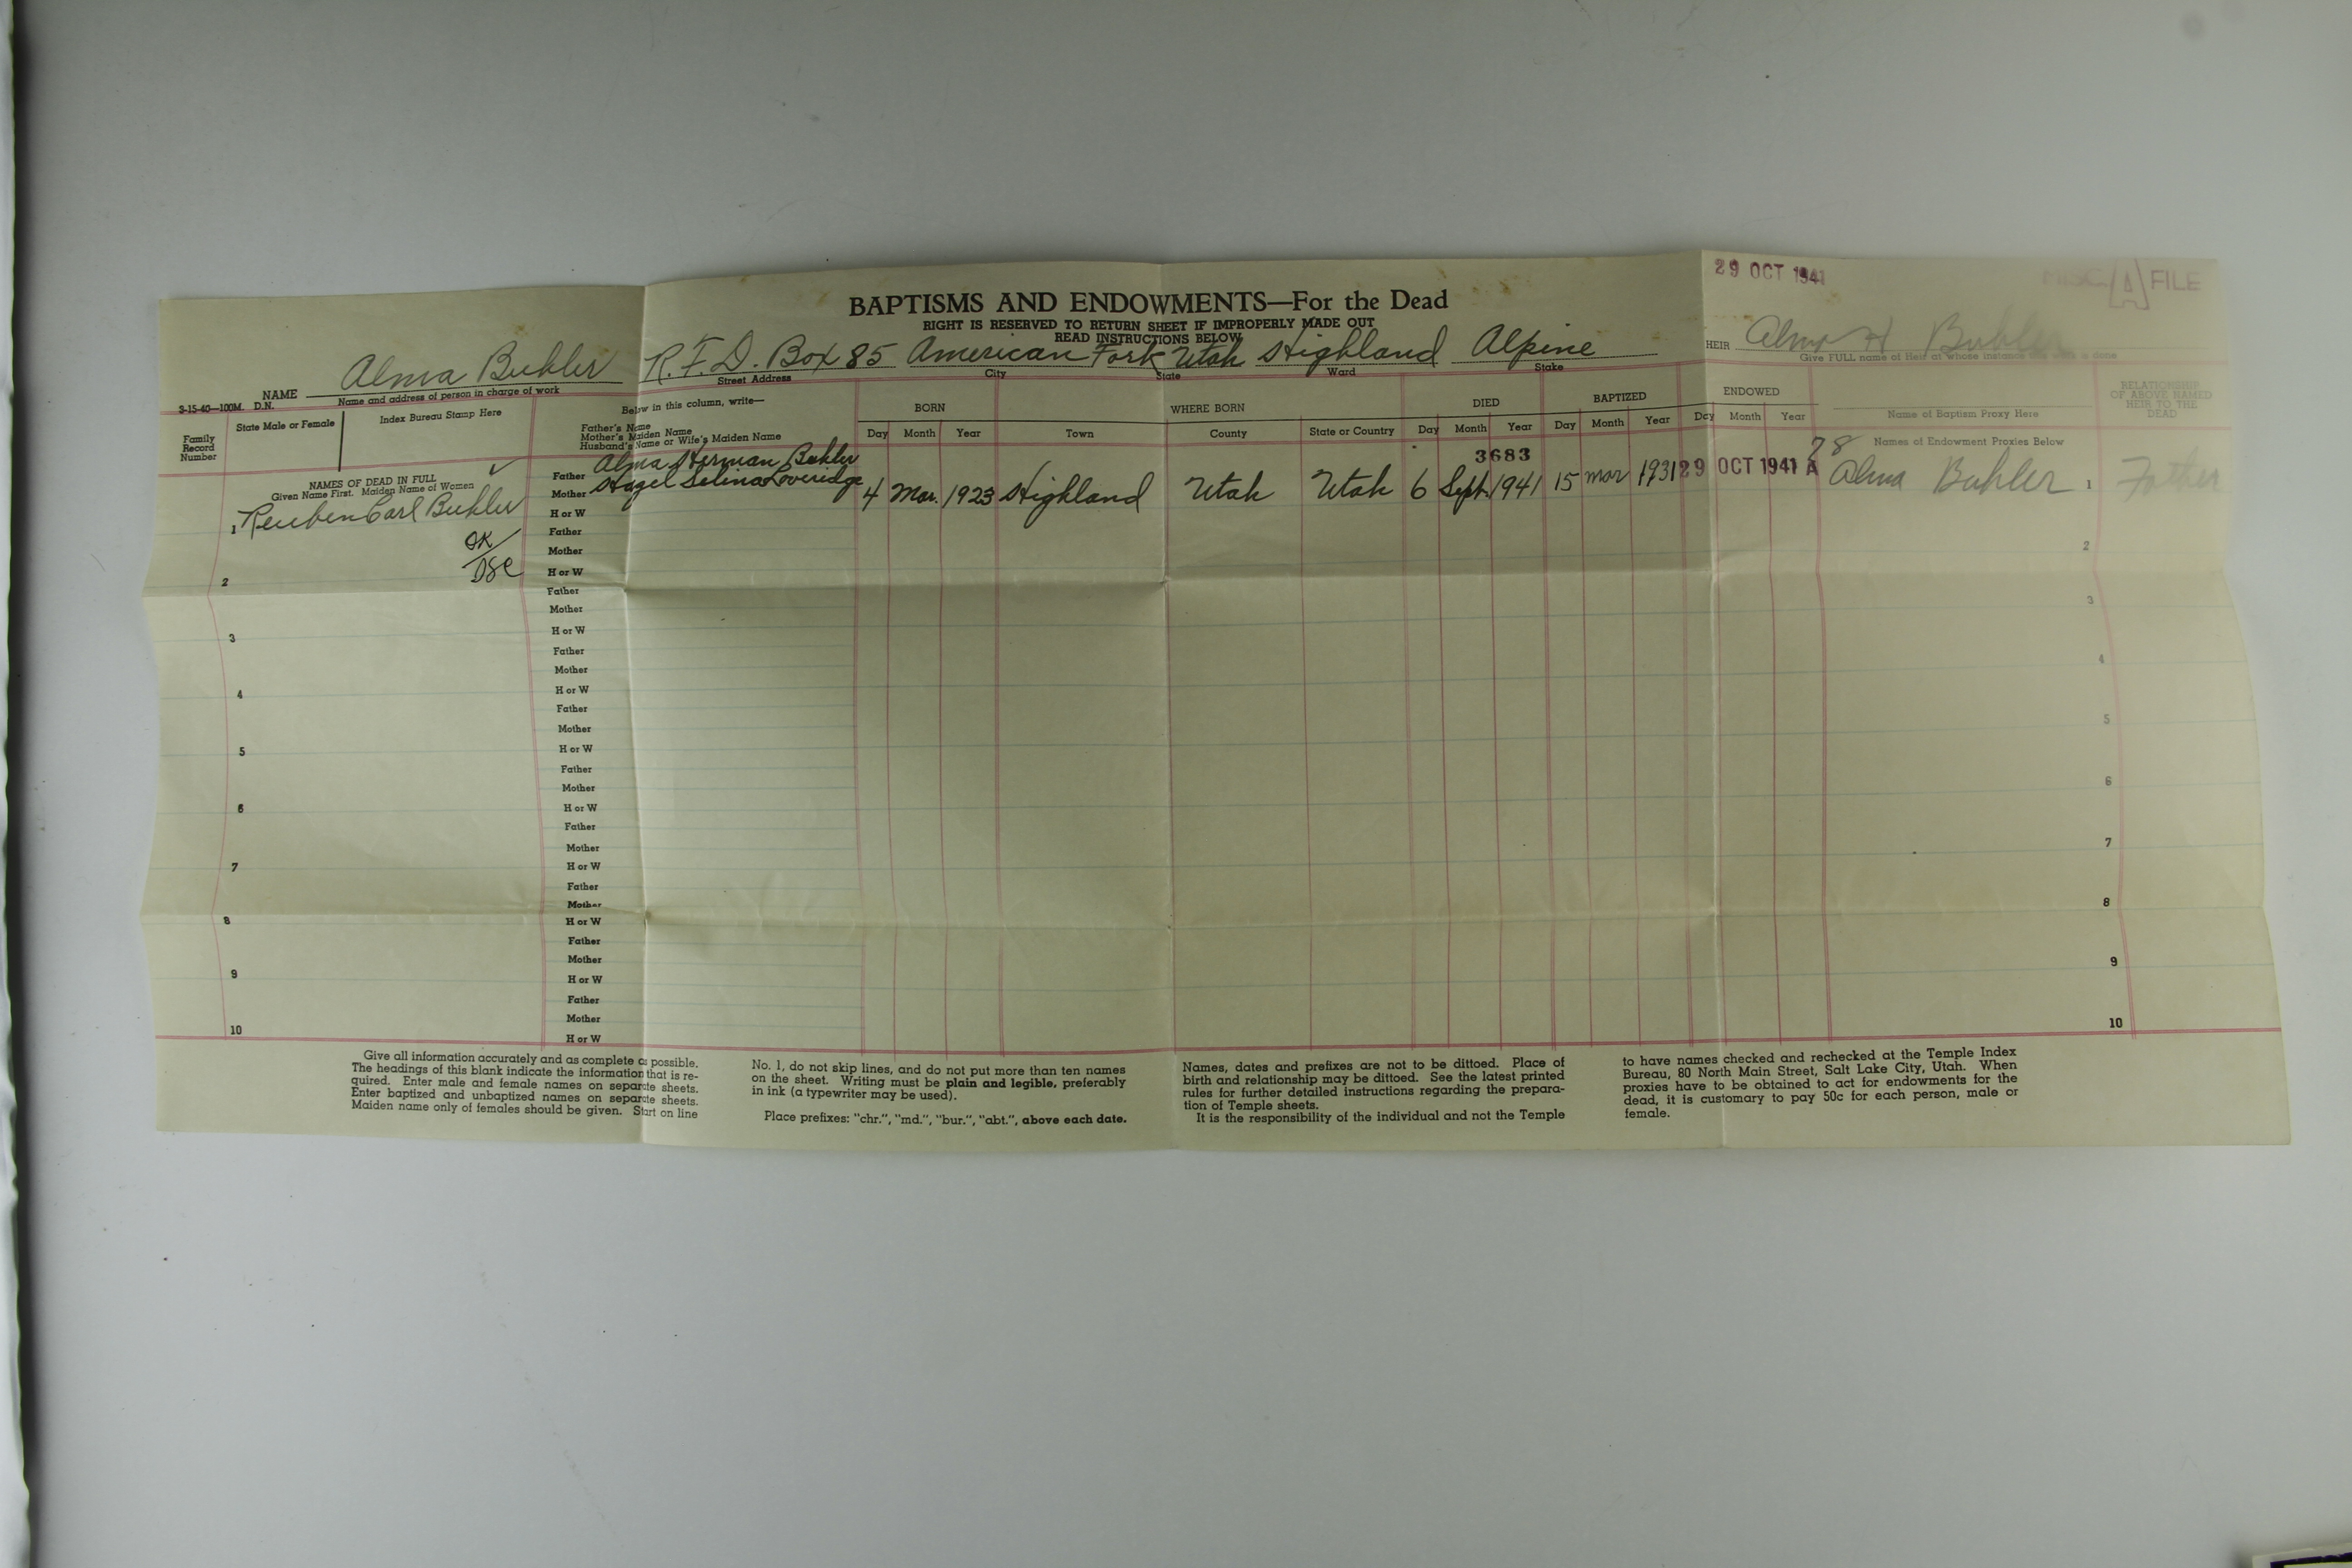 29 OCT 1941
MISC. A FILE
BAPTISMS AND ENDOWMENTS—For the Dead
RIGHT IS RESERVED TO RETURN SHEET IF IMPROPERLY MADE OUT
READ INSTRUCTIONS BELOW
NAME Alma Buhler R.F.D. Box 85 American Fork Utah Highland Alpine
HEIR Alma H Buhler
3-15-40—100M. D.N. Name and address of person in charge of work Street Address City State Ward Stake
Give FULL name of Heir at whose instance is done
Family Record Number
State Male or Female
Index Bureau Stamp Here
Below in this column, write—
Father's Name
Mother's Maiden Name
Husband's Name or Wife's Maiden Name
BORN WHERE BORN DIED BAPTIZED ENDOWED
Day Month Year Town County State or Country Day Month Year Day Month Year Day Month Year
Name of Baptism Proxy Here
Names of Endowment Proxies Below
RELATIONSHIP OF ABOVE NAMED HEIR TO THE DEAD
NAMES OF DEAD IN FULL
Given Name First. Maiden Name of Women
3683
78
Father Alma Herman Buhler
Mother Hazel Selina Loveridge
1 Reuben Carl Buhler H or W 4 Mar. 1923 Highland Utah Utah 6 Sept. 1941 15 mar 1931 29 OCT 1941 A Alma Buhler 1 Father
OK
DSC
Father
Mother
2 H or W 2
Father
Mother
3 H or W 3
Father
Mother
4 H or W 4
Father
Mother
5 H or W 5
Father
Mother
6 H or W 6
Father
Mother
7 H or W 7
Father
Mother
8 H or W 8
Father
Mother
9 H or W 9
Father
Mother
10 H or W 10
Give all information accurately and as complete as possible.
The headings of this blank indicate the information that is re-
quired. Enter male and female names on separate sheets.
Enter baptized and unbaptized names on separate sheets.
Maiden name only of females should be given. Start on line
No. 1, do not skip lines, and do not put more than ten names
on the sheet. Writing must be plain and legible, preferably
in ink (a typewriter may be used).
Place prefixes: "chr.", "md.", "bur.", "abt.", above each date.
Names, dates and prefixes are not to be dittoed. Place of
birth and relationship may be dittoed. See the latest printed
rules for further detailed instructions regarding the prepara-
tion of Temple sheets.
It is the responsibility of the individual and not the Temple
to have names checked and rechecked at the Temple Index
Bureau, 80 North Main Street, Salt Lake City, Utah. When
proxies have to be obtained to act for endowments for the
dead, it is customary to pay 50c for each person, male or
female.